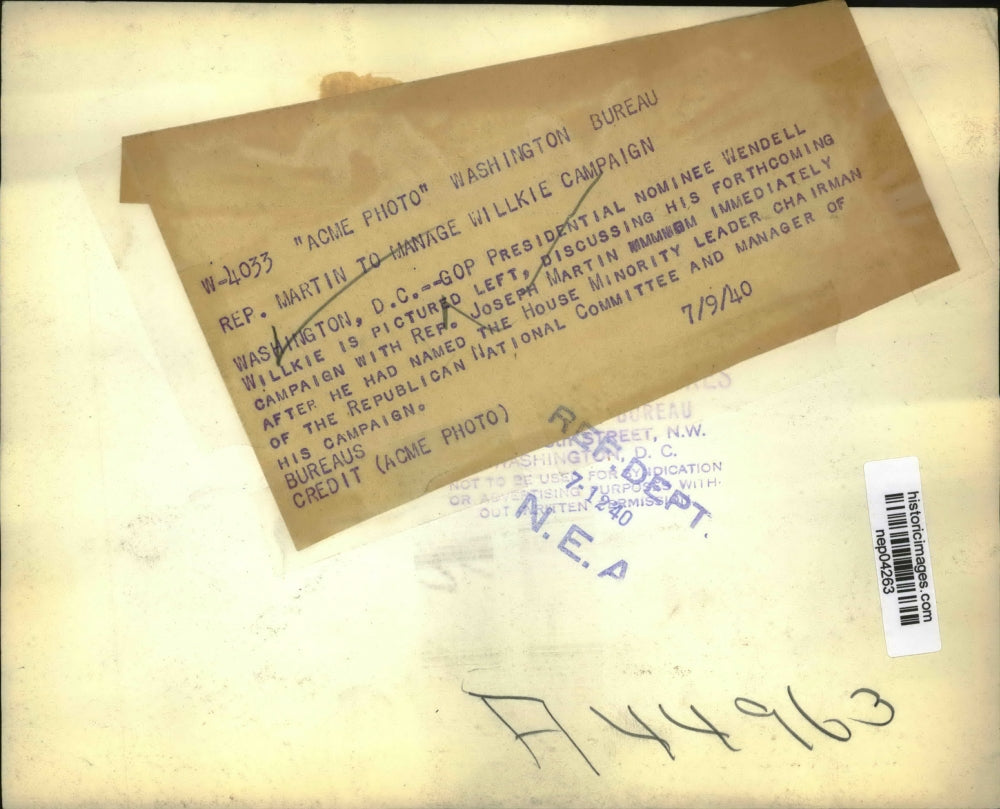 W-4033 "ACME PHOTO" WASHINGTON BUREAU
REP. MARTIN TO MANAGE WILLKIE CAMPAIGN
WASHINGTON, D.C.--GOP PRESIDENTIAL NOMINEE WENDELL
WILLKIE IS PICTURED LEFT, DISCUSSING HIS FORTHCOMING
CAMPAIGN WITH REP. JOSEPH MARTIN IMMEDIATELY
AFTER HE HAD NAMED THE HOUSE MINORITY LEADER CHAIRMAN
OF THE REPUBLICAN NATIONAL COMMITTEE AND MANAGER OF
HIS CAMPAIGN.
BUREAUS 7/9/40
CREDIT (ACME PHOTO)
BUREAU
STREET, N.W.
WASHINGTON, D. C.
NOT TO BE USED FOR SYNDICATION
OR ADVERTISING PURPOSES WITH-
OUT WRITTEN PERMISSION
REF. DEPT.
7-12-40
N.E.A
historicimages.com
nep04263
A44963